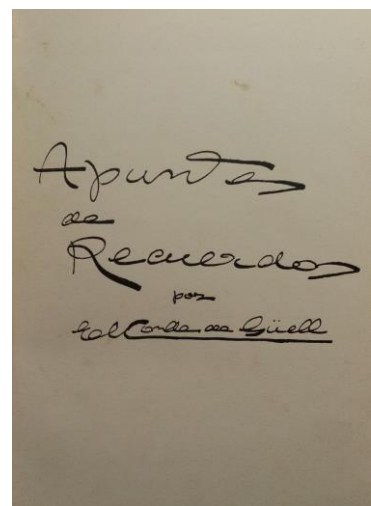 Apuntes
de
Recuerdos
por
El Conde de Güell